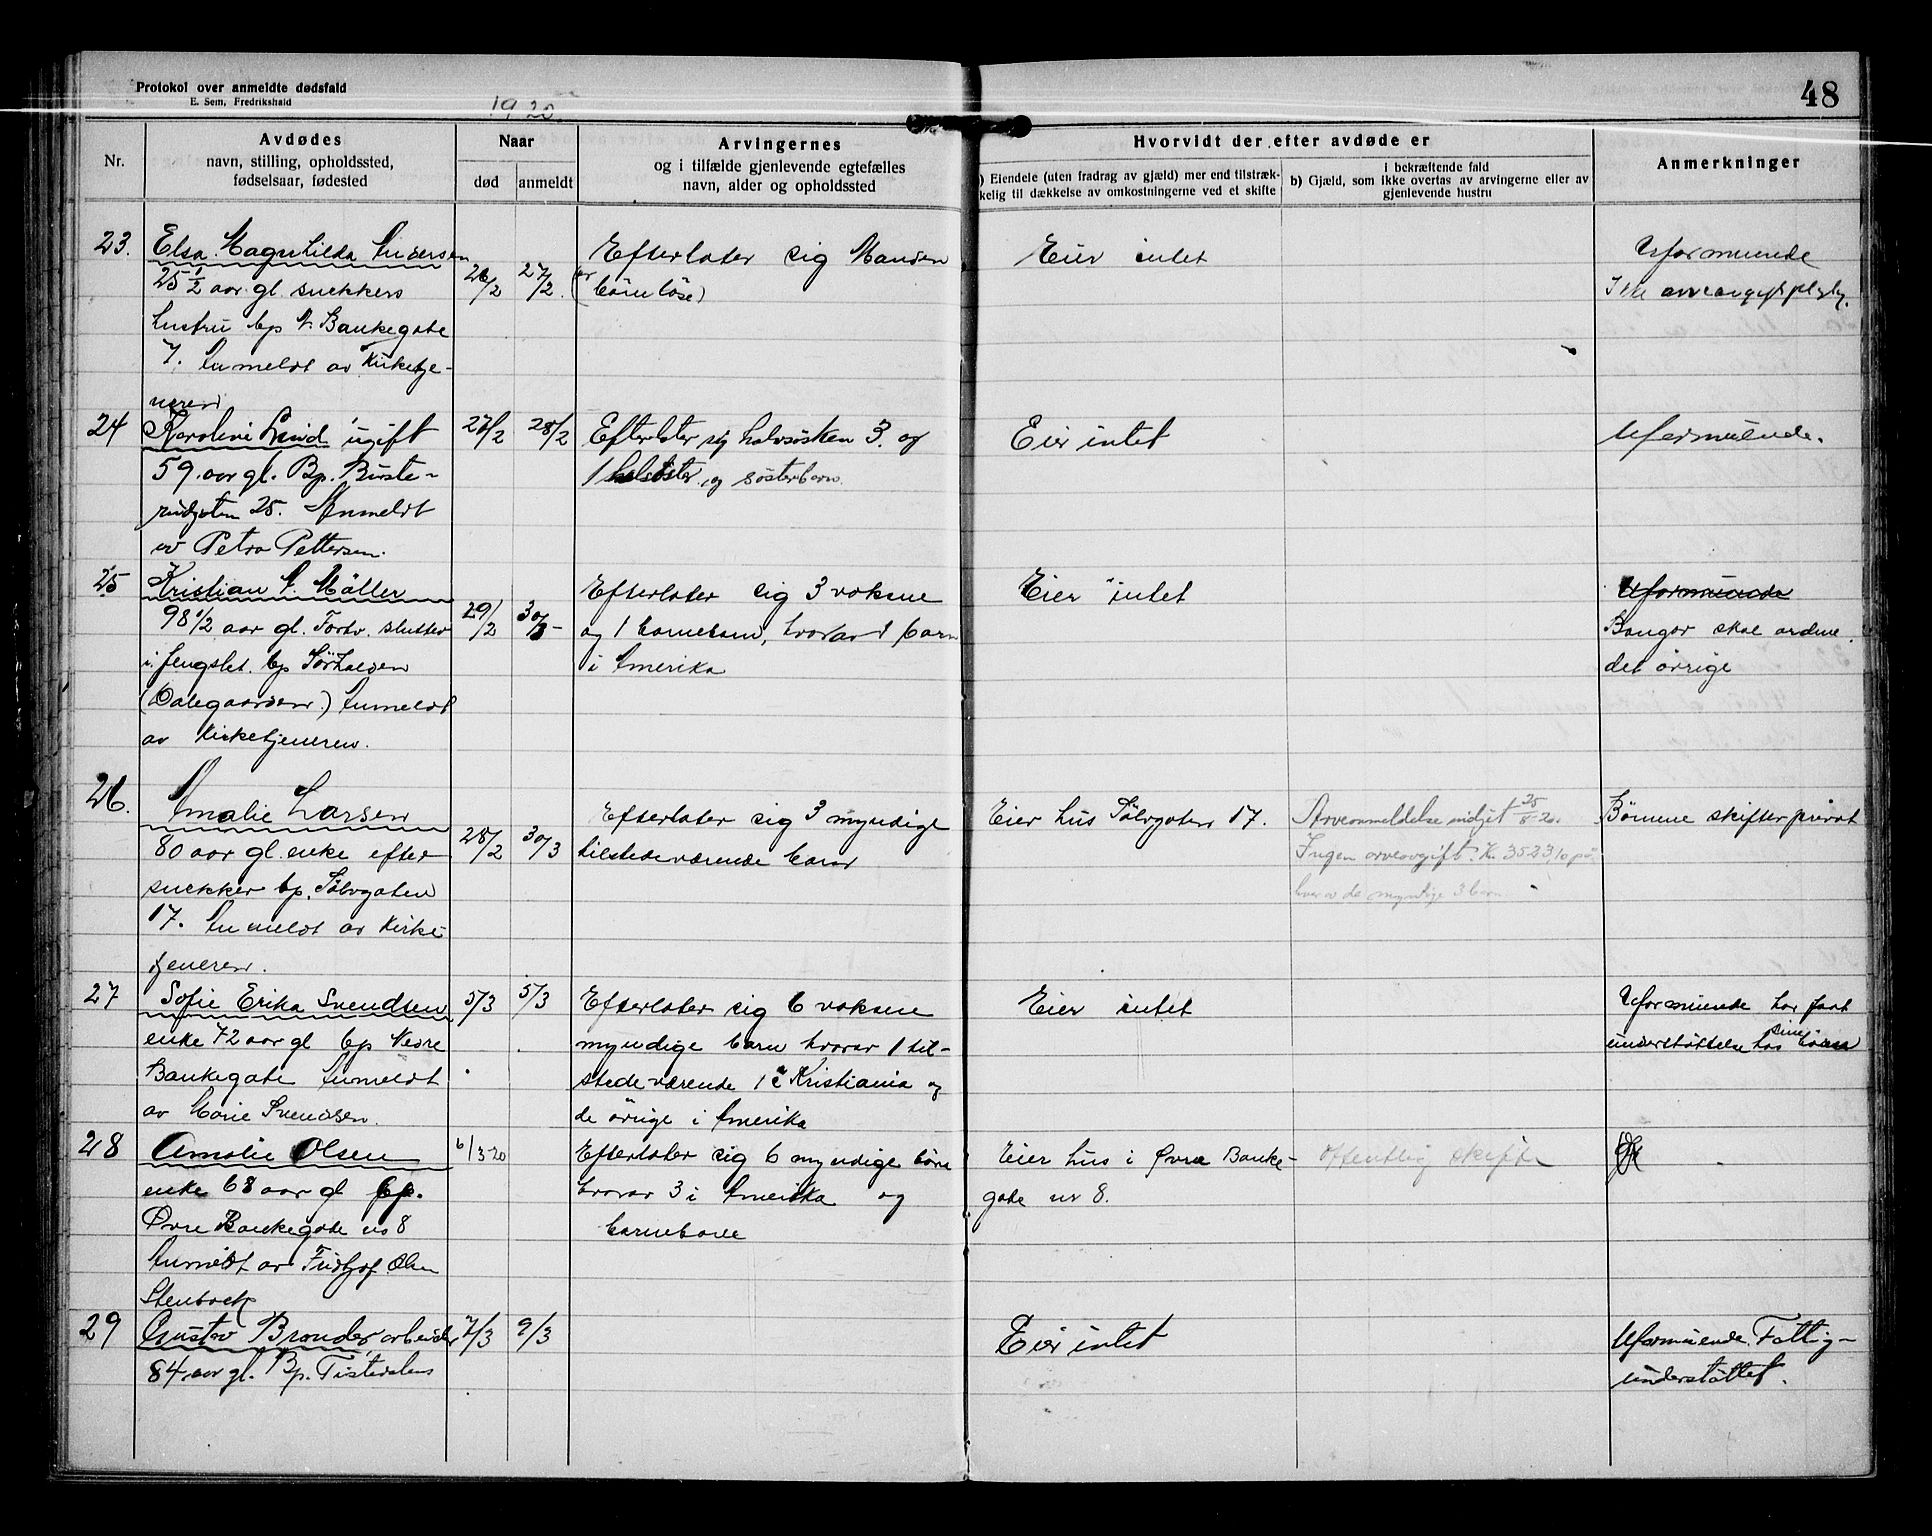 Protokol over anmeldte dødsfald
E. Sem, Fredrikshald
1920
48
Nr.
Avdødes
navn, stilling, opholdssted,
fødselsaar, fødested
Naar
død
anmeldt
Arvingernes
og i tilfælde gjenlevende egtefælles
navn, alder og opholdssted
Hvorvidt der efter avdøde er
) Eiendele (uten fradrag av gjæld) mer end tilstræk-
kelig til dækkelse av omkostningerne ved et skifte
i bekræftende fald
b) Gjæld, som ikke overtas av arvingerne eller av
gjenlevende hustru
Anmerkninger
23.
Elsa Magnhilda Andersen
25 1/2 aar gl. snekkers
hustru bp N. Bankegate
7. Anmeldt av Kirketje-
neren
26/2
27/2.
Efterlater sig Manden
(er barnløse)
Eier intet
Uformuende
Ikke arveavgiftpligtig.
24
Karoline Lund ugift
59 aar gl. Bp. Buste-
rudgaten 25. Anmeldt
av Petra Pettersen.
27/2
28/2
Efterlater sig halvsøsken 3. og
1 helsøster, og søsterbarn.
Eier intet
Uformuende.
25
Kristian A. Møller
98 1/2 aar gl. Forhv. slutter
i fengslet. bp Sørhalden
(Dalegaarden.) Anmeldt
av Kirketjeneren.
29/2
30/3-
Efterlater sig 3 voksne
og 1 barnebarn, hvorav 1 barn
i Amerika
Eier intet
Uformuende
Bangor skal ordne
det øvrige
26.
Amalie Larsen
80 aar gl. enke efter
snekker bp. Sølvgaten
17. Anmeldt av Kirke-
tjeneren.
28/2
30/3
Efterlater sig 3 myndige
tilstedeværende barn
Eier hus Sølvgaten 17.
Arveanmeldelse indgit 25/8-20.
Ingen arveavgift. Kr. 3523,10 på
hver av de myndige 3 barn
Børnene skifter privat
27
Sofie Erika Svendsen
enke 72 aar gl bp Nedre
Bankegate Anmeldt
av Marie Svendsen.
5/3
5/3
Efterlater sig 6 voksne
myndige barn hvorav 1 til-
stedeværende 1 i Kristiania og
de øvrige i Amerika
Eier intet
Uformuende har faat
understøttelse hos sine børn
28
Amalie Olsen
enke 68 aar gl bp.
Øvre Bankegate no 8
Anmeldt av Fridtjof Olsen
Stenbock
6/3-20
Efterlater sig 6 myndige børn
hvorav 3 i Amerika og
barnebarn
Eier hus i Øvre Banke-
gate nr 8.
Offentlig skifte
29
Gustav Brander, arbeider
84. aar gl. Bp. Tistedalen
7/3
9/3
Eier intet
Uformuende. Fattig-
understøttet.